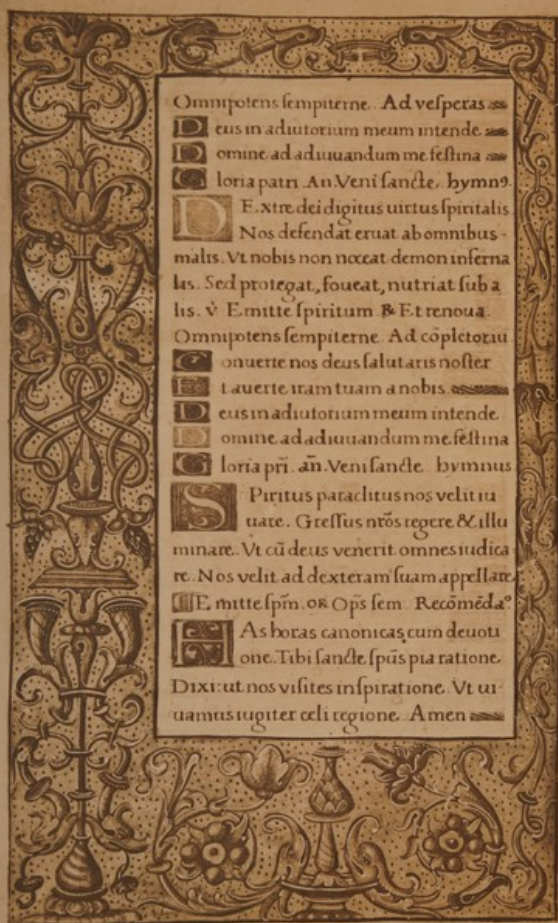 Omnipotens sempiterne. Ad vesperas
Deus in adiutorium meum intende
Domine ad adiuuandum me festina
Gloria patri. An. Veni sancte. hymnꝯ.
DExtre dei digitus uirtus spiritalis
Nos defendat eruat ab omnibus
malis. Vt nobis non noceat demon inferna
lis. Sed protegat, foueat, nutriat sub a
lis. v̇ Emitte spiritum. ℞ Et renoua.
Omnipotens sempiterne. Ad cōpletoriū
Conuerte nos deus salutaris noster
Et auerte iram tuam a nobis.
Deus in adiutorium meum intende
Domine ad adiuuandum me festina
Gloria pr̄i. an̄. Veni sancte. hymnus
SPiritus paraclitus nos velit iu
uare. Gressus nr̄os regere & illu
minare. Vt cū deus venerit omnes iudica
re. Nos velit ad dexteram suam appellare
Emitte sp̄m. or̄ Op̄s sem. Recōmēda⁹
HAs horas canonicas cum deuoti
one. Tibi sancte sp̄us pia ratione
Dixi: ut nos visites inspiratione. Vt ui
uamus iugiter celi regione. Amen